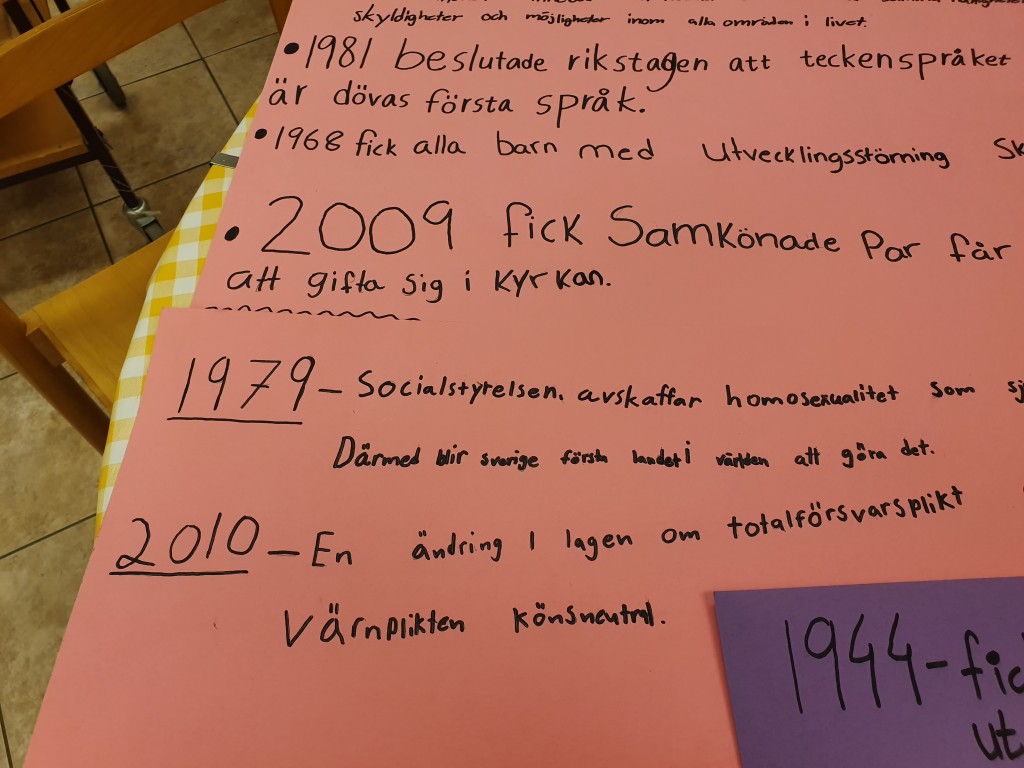 skyldigheter och möjligheter inom alla områden i livet.
• 1981 beslutade rikstagen att teckenspråket
är dövas första språk.
• 1968 fick alla barn med Utvecklingsstörning Sk
• 2009 fick Samkönade Par får
att gifta sig i Kyrkan.
1979 – Socialstyrelsen. avskaffar homosexualitet som sj
Därmed blir sverige första landet i världen att göra det.
2010 – En ändring I lagen om totalförsvarsplikt
Värnplikten könsneutral.
1944 – fic
ut